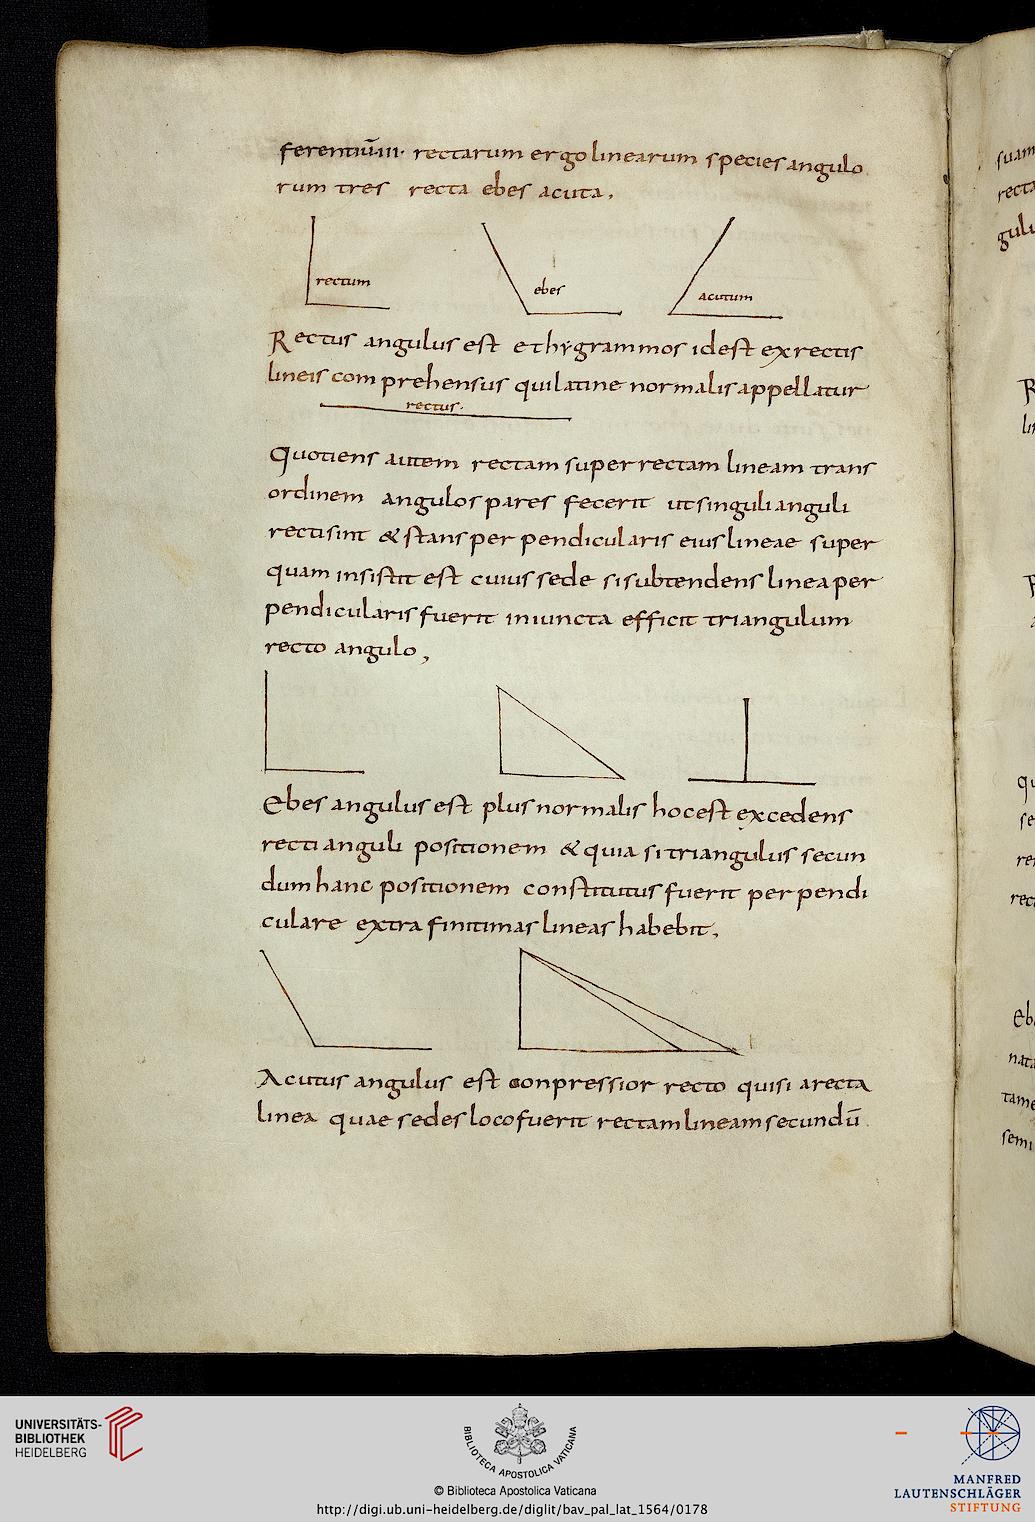 ferentiūIII· rectarum ergo linearum species angulo
rum tres recta ebes acuta.
rectum
ebes
acutum
Rectus angulus est ethygrammos id est ex rectis
lineis comprehensus qui latine normalis appellatur
rectus·
Quotiens autem rectam super rectam lineam trans
ordinem angulos pares fecerit ut singuli anguli
recti sint & stans perpendicularis eius lineae super
quam insistit est cuius sede si subtendens linea per
pendicularis fuerit iniuncta efficit triangulum
recto angulo,
Ebes angulus est plus normalis hoc est excedens
recti anguli positionem & quia si triangulus secun
dum hanc positionem constitutus fuerit perpendi
culare extra finitimas lineas habebit,
Acutus angulus est conpressior recto qui si a recta
linea quae sedes loco fuerit rectam lineam secundū
suam
recta
gulu
R
li
qu
se
rec
Eb
nata
tame
semi
UNIVERSITÄTS-
BIBLIOTHEK
HEIDELBERG
BIBLIOTECA APOSTOLICA VATICANA
© Biblioteca Apostolica Vaticana
http://digi.ub.uni-heidelberg.de/diglit/bav_pal_lat_1564/0178
MANFRED
LAUTENSCHLÄGER
STIFTUNG